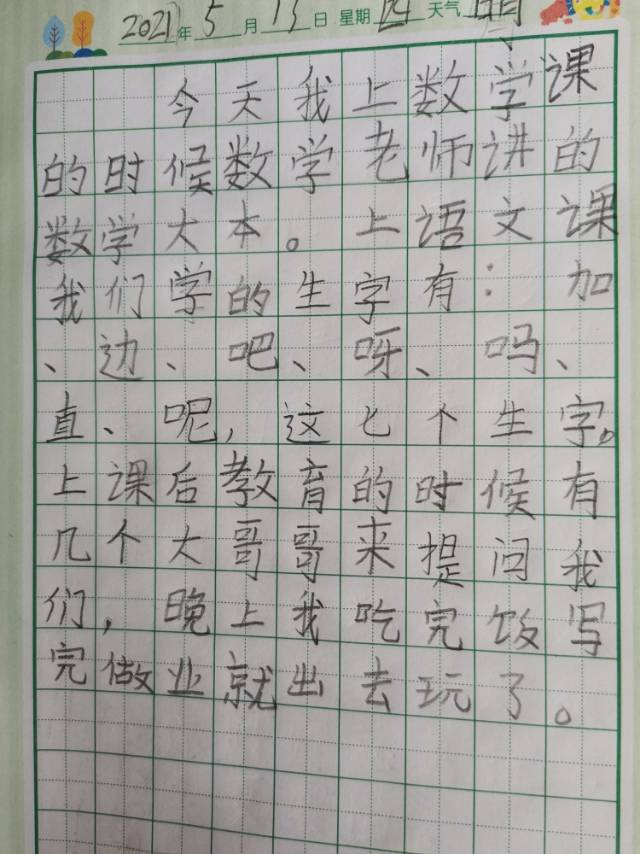 2021年5月13日 星期四 天气晴
今天我上数学课
的时候数学老师讲的
数学大本。上语文课
我们学的生字有：加
、边、吧、呀、吗、
直、呢，这七个生字。
上课后教育的时候有
几个大哥哥来提问我
们，晚上我吃完饭写
完做业就出去玩了。